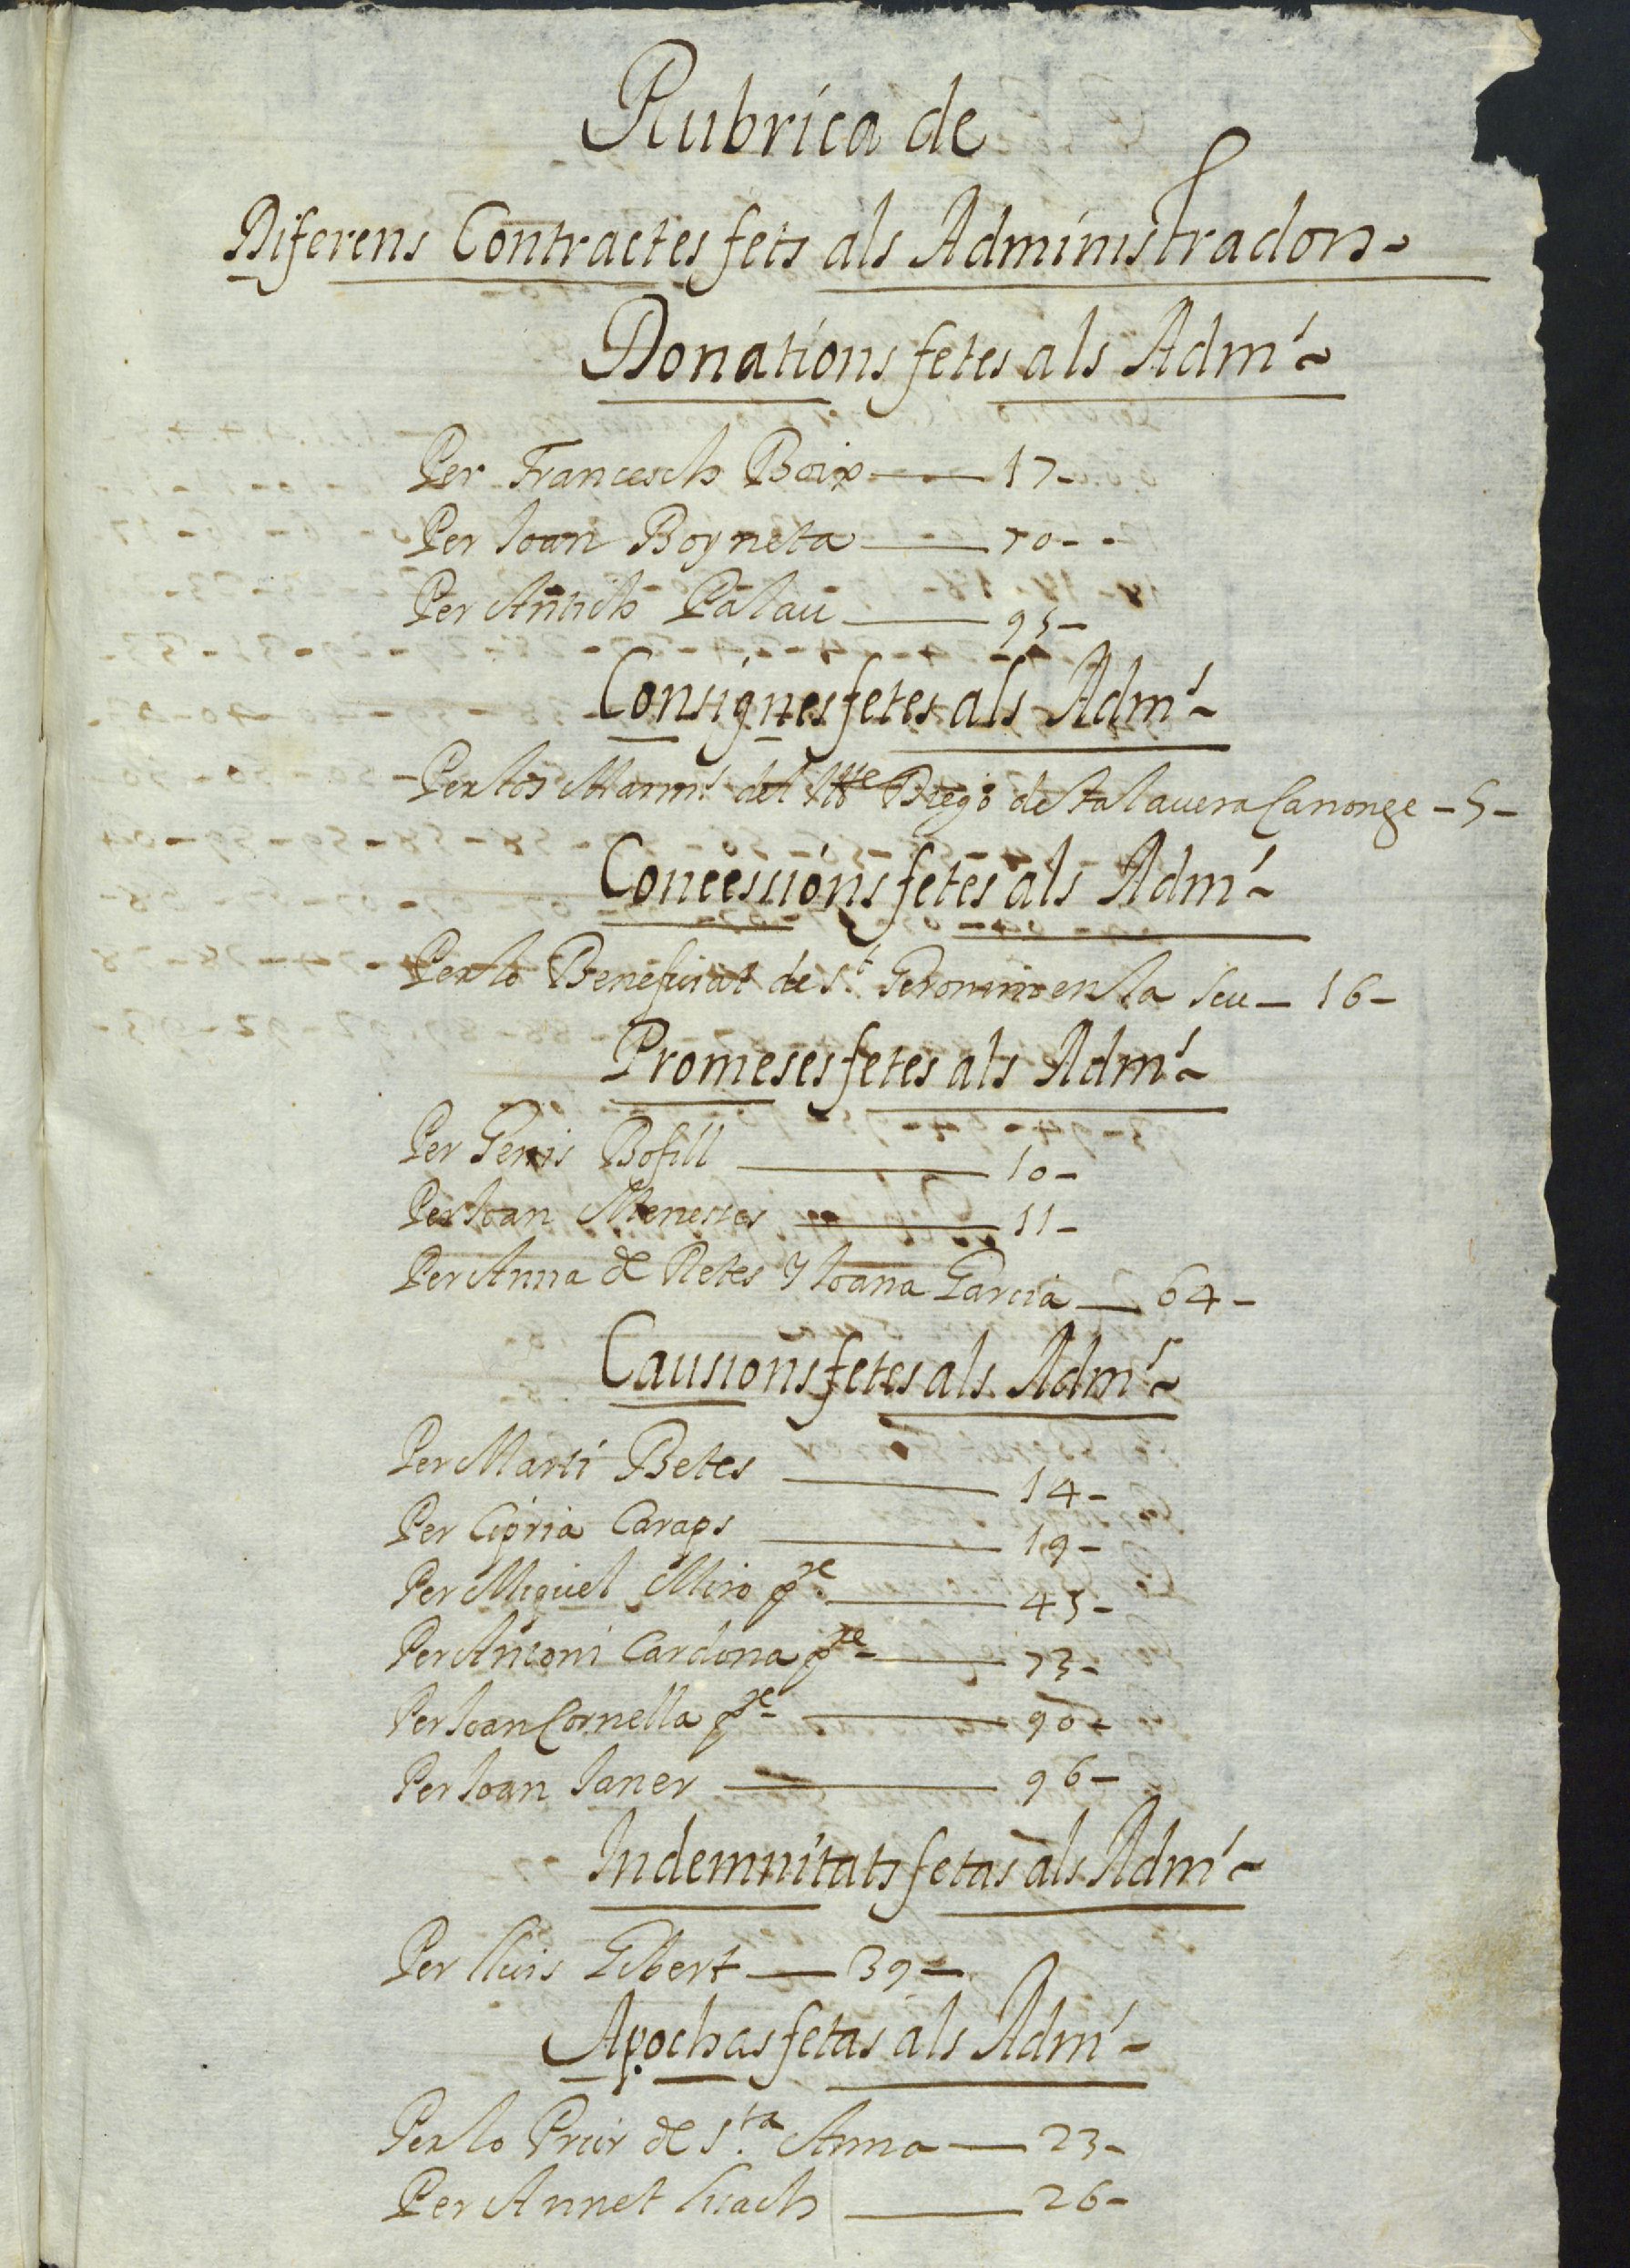 Rubrica de
Diferens Contractes fets als Administradors
Donations fetes als Adm.s
Per Francesch Boix — 17 -
Per Joan Boyneta — 70 -
Per Antich Palau — 95 -
Consignes fetes als Adm.s
Per los Marm.s del Diego de Talavera Canonge - 5 -
Concessions fetes als Adm.s
Per lo Beneficiat de S.t Geronimo en la Seu — 16 -
Promeses fetes als Adm.s
Per Genis Bofill — 10 -
Per Joan Menescos — 11 -
Per Anna de Retes y Joana Garcia — 64 -
Causions fetes als Adm.s
Per Marti Betes — 14 -
Per Cipria Caraps — 19 -
Per Miquel Miro p.re — 45 -
Per Antoni Cardona p.re — 73 -
Per Joan Cornella p.re — 90 -
Per Joan Janer — 96 -
Indemnitats fetas als Adm.s
Per lluis Gibert — 39 -
Apochas fetas als Adm.s
Per lo Prior de S.ta Anna — 23 -
Per Annet — 26 -